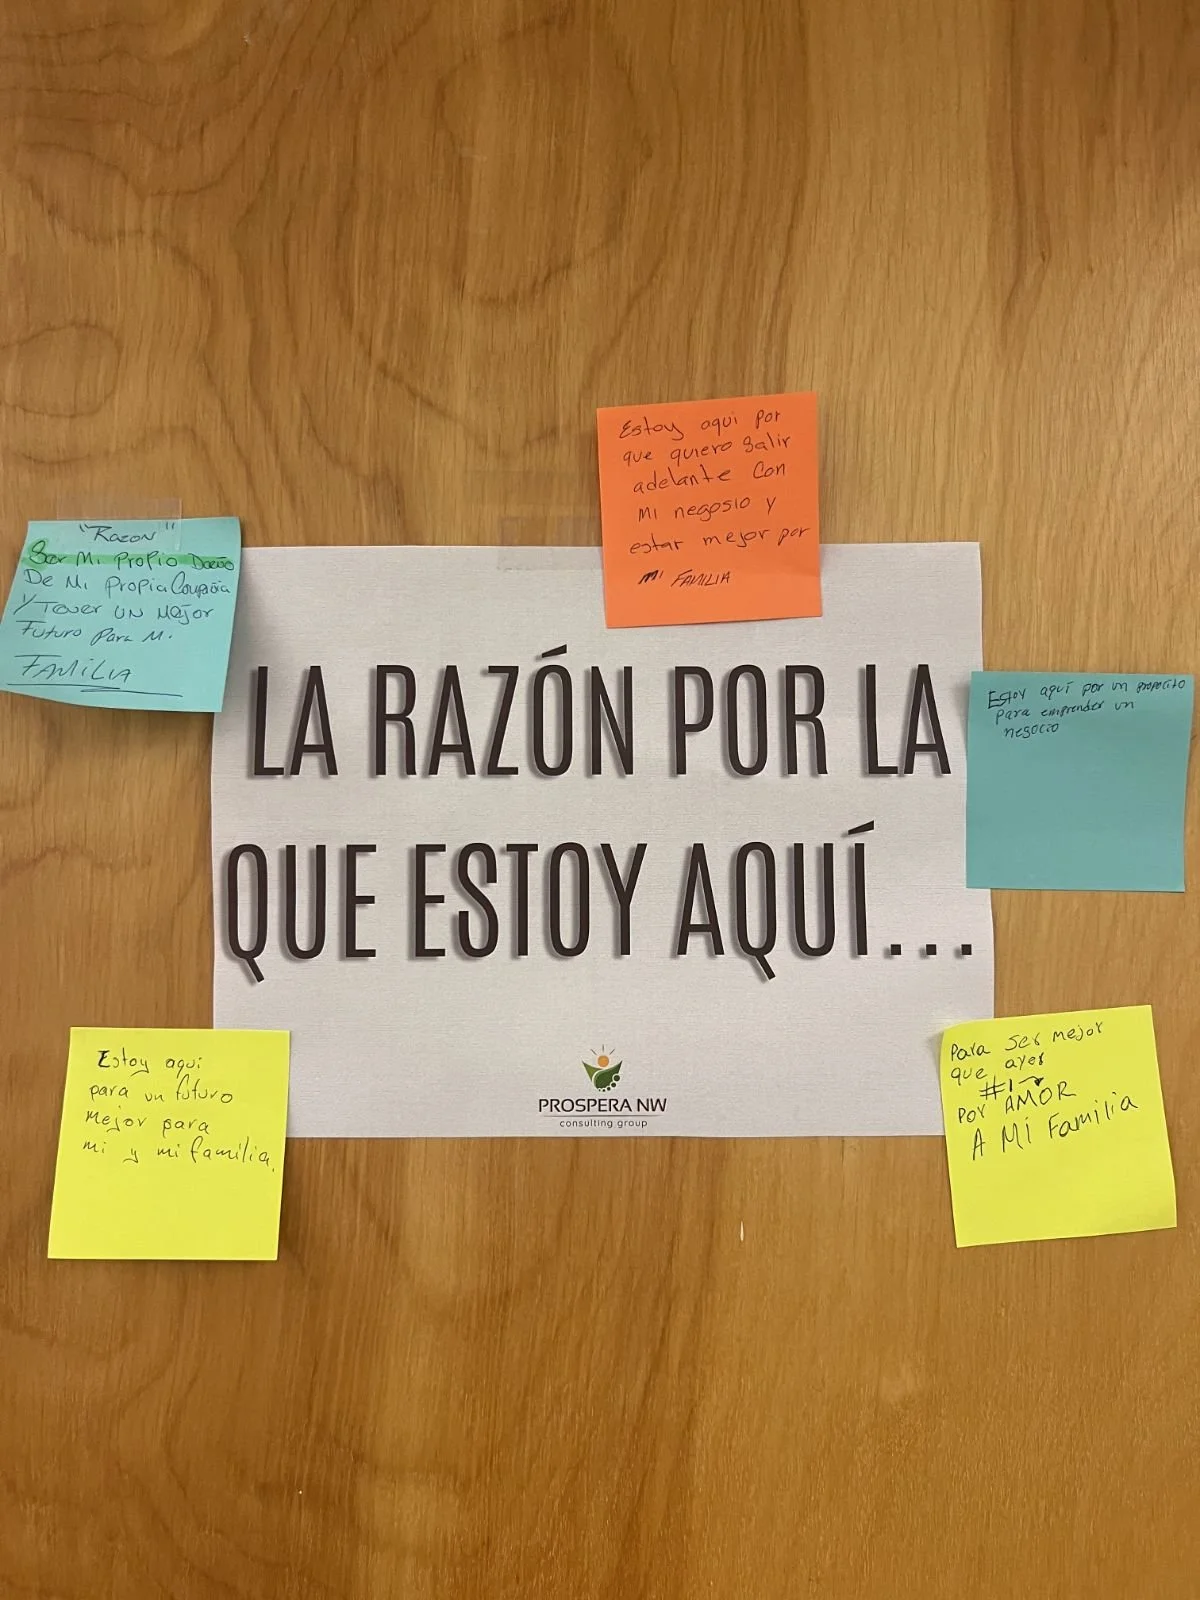 Estoy aqui por
que quiero salir
adelante con
mi negosio y
estar mejor por
mi FAMILIA
"Razon"
Ser Mi Propio Dueño
De Mi Propia Compañia
Y Tener UN Mejor
Futuro Para Mi
FAMILIA
LA RAZÓN POR LA
QUE ESTOY AQUÍ...
Estoy aquí por un proposito
para emprender un
negocio
Estoy aqui
para un futuro
mejor para
mi y mi familia.
Para ser mejor
que ayer
#1
Por AMOR
A Mi Familia
PROSPERA NW
consulting group